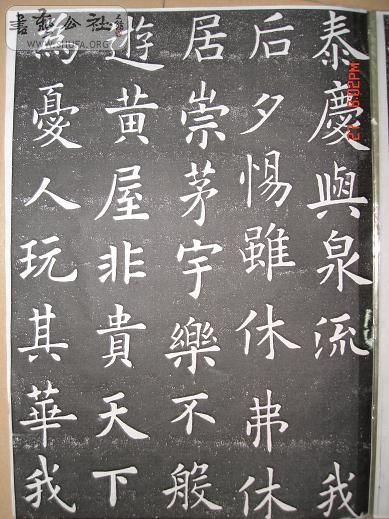 泰慶與泉流我
后夕惕雖休弗休
居崇茅宇樂不般
遊黄屋非貴天下
為憂人玩其華我
WWW.SHUFA.ORG
6:02PM